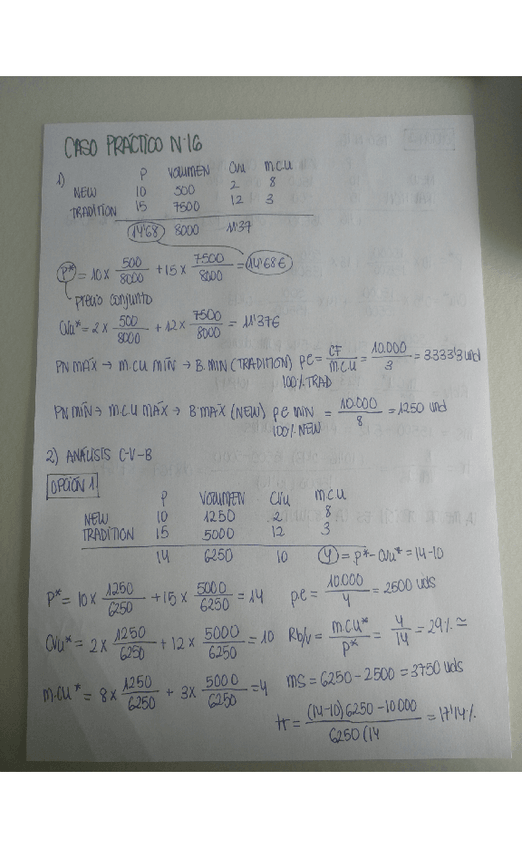 CASO PRÁCTICO N·16
1)
P VOLUMEN CVu m.c.u
NEW 10 500 2 8
TRADITION 15 7500 12 3
14'68 8000 11'37
P* = 10 x 500/8000 + 15 x 7500/8000 = 14'68€
precio conjunto
CVu* = 2 x 500/8000 + 12 x 7500/8000 = 11'37€
PN MÁX → m.c.u MÍN → B.MIN (TRADITION) pe = CF/m.c.u = 10.000/3 = 3333'3 und
100% TRAD
PN MÍN → m.c.u MÁX → B.MAX (NEW) pe MIN = 10.000/8 = 1250 und
100% NEW
2) ANÁLISIS C-V-B
OPCIÓN 1
P VOLUMEN CVu m.c.u
NEW 10 1250 2 8
TRADITION 15 5000 12 3
14 6250 10 4 = p* - CVu* = 14-10
P* = 10 x 1250/6250 + 15 x 5000/6250 = 14 p.e = 10.000/4 = 2500 uds
CVu* = 2 x 1250/6250 + 12 x 5000/6250 = 10 Rb/v = m.cu*/p* = 4/14 = 29% ≃
m.cu* = 8 x 1250/6250 + 3 x 5000/6250 = 4 ms = 6250 - 2500 = 3750 uds
tr = (14-10)6250 - 10000/6250(14 = 17'14%